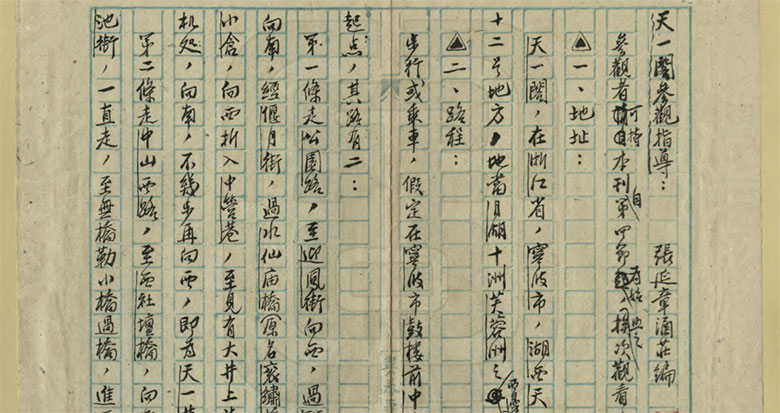 天一閣參觀指導：　張延章酒莊編
參觀者可持本刊自第四節有始，與之挨次觀看
一、地址：
天一閣，在浙江省，寧波市，湖西天
十二号地方，地當月湖十洲芙蓉洲之
二、路程：
步行或乘車，假定在寧波市鼓樓前中
起点，其路有二：
第一條走公園路，至迎鳳街向西，過
向南，經偃月街，過水仙庙橋原名衮繡
小舍，向西折入中营巷，至見有大井上
机処，向南，不幾步再向西，即為天一
第二條走中山西路，至西社壇橋，向
池街，一直走，至無橋勒小橋過橋，進